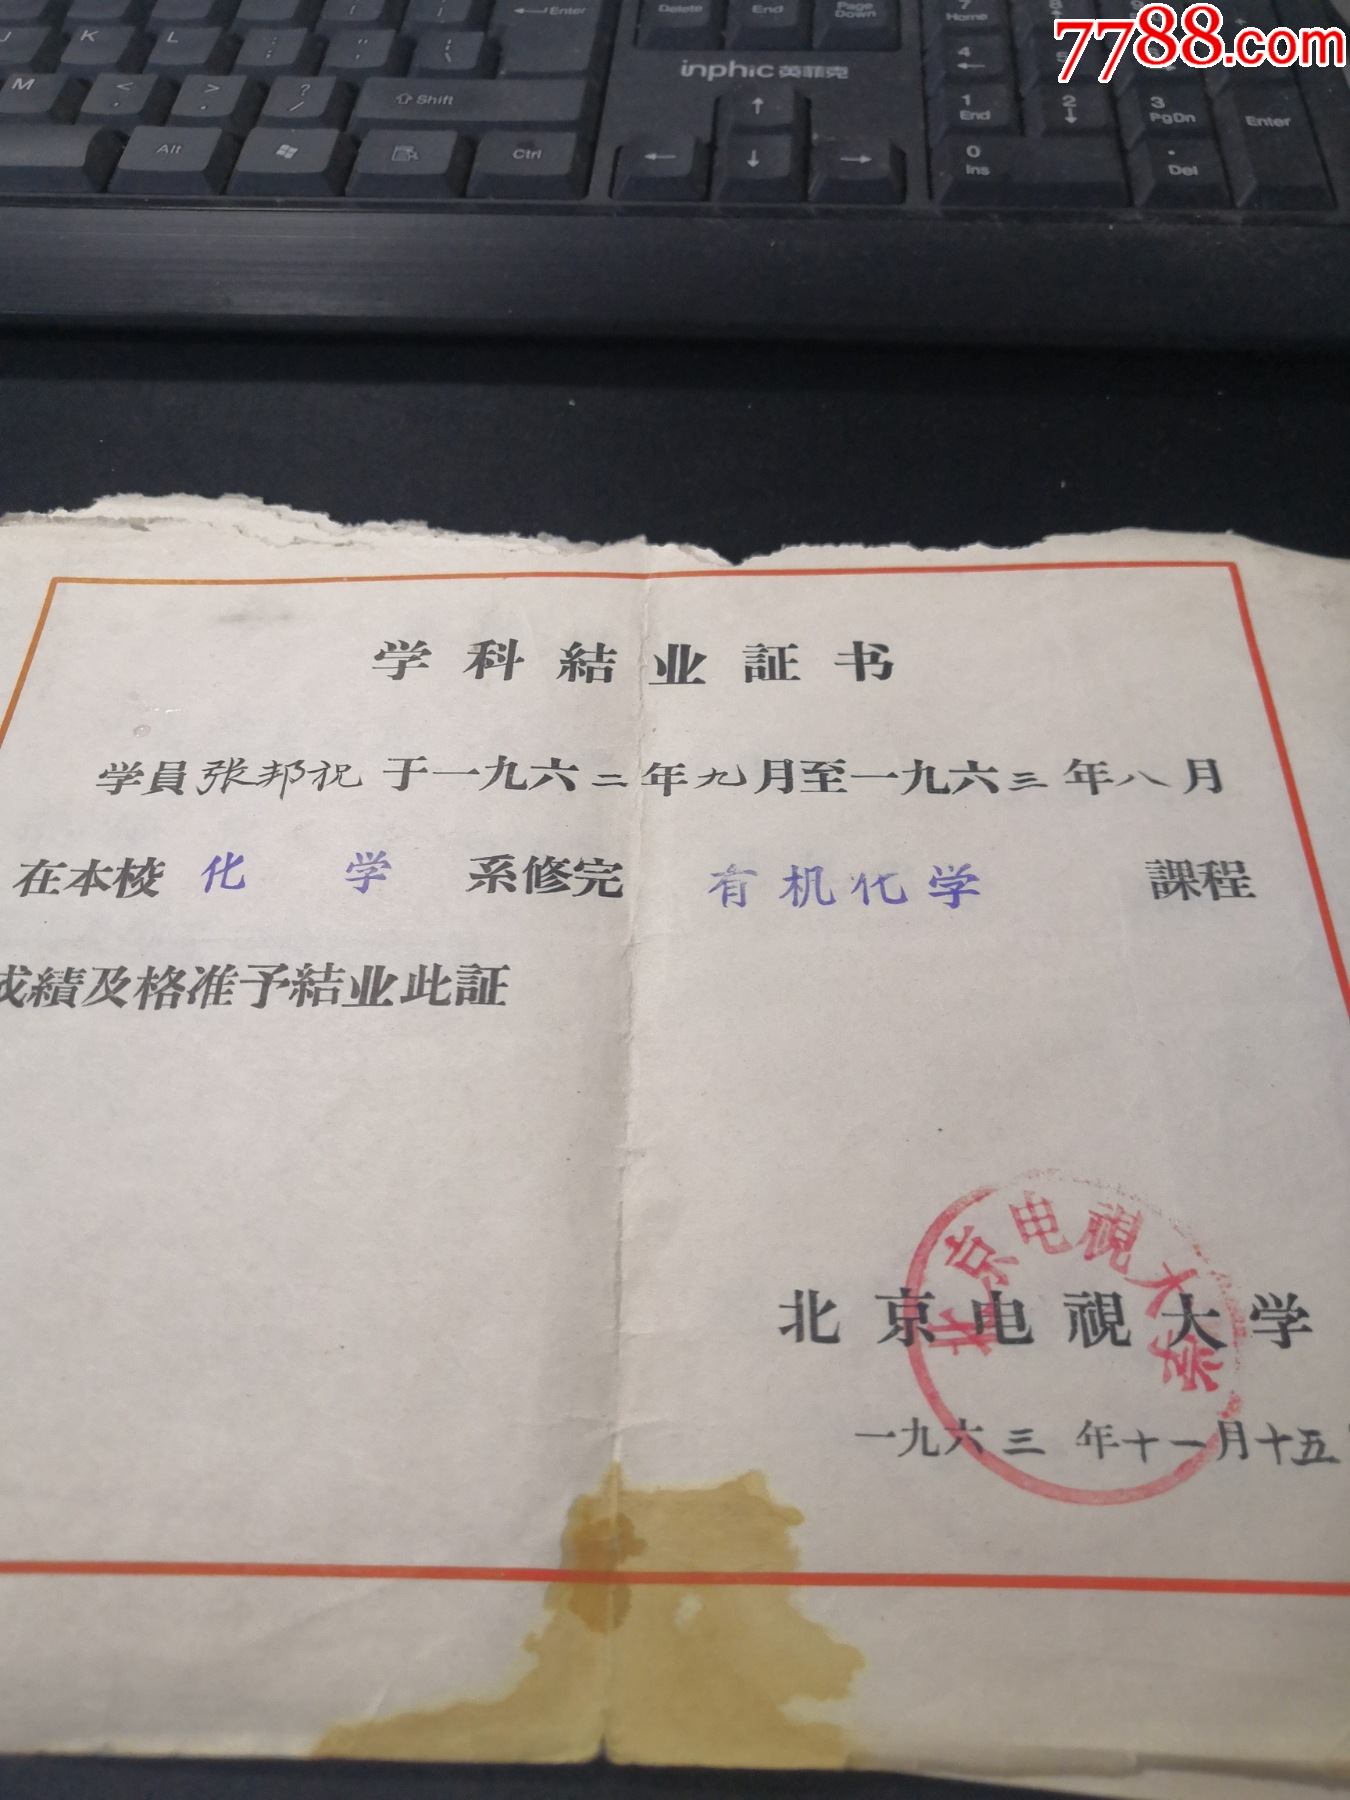 7788.com
Enter Delete End Page Down 7 Home 8 9
J K L : ; " ' { [
inphic 英菲克
4
M < , > . ? / Shift
1 End 2 3 PgDn Enter
Alt Ctrl
0 Ins . Del
学科結业証书
学員张邦祝于一九六二年九月至一九六三年八月
在本校 化学 系修完 有机化学 課程
成績及格准予結业此証
北京电視大学
北京电視大学
一九六三年十一月十五